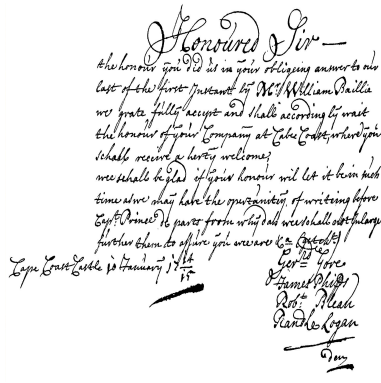 Honoured Sir —
the honour you did us in your obligeing answer to our
last of the first Instant by Mr. William Baillie
we grate fully accept and shall accordingly wait
the honour of your Company at Cabe Coast, where you
schall receive a herty welcome,
wee schall be glad if your honour wil let it be in such
time as we may have the oportunity, of writing before
Capt. Prince de parts from whydah wee schall not Inlarge
further then to assure you we are
Gerrd Gore
James Phipps
Robt. Bleau
Randle Logan
Cape Coast Castle 10 January 17 14/15